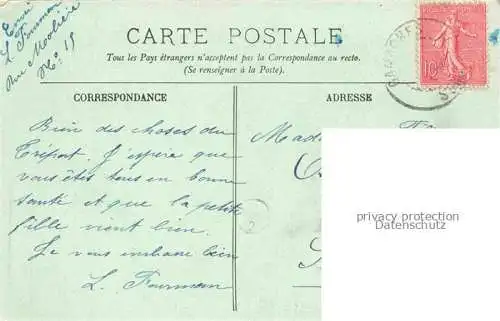 Envoi
L. Fourman
Rue Molière
No. 15
CARTE POSTALE
Tous les Pays étrangers n'acceptent pas la Correspondance au recto.
(Se renseigner à la Poste).
CORRESPONDANCE
ADRESSE
Bien des choses du
Tréport. J'espère que
vous êtes tous en bonne
santé et que la petite
fille vient bien.
Je vous embrasse bien
L. Fourman
Mada
10
privacy protection
Datenschutz